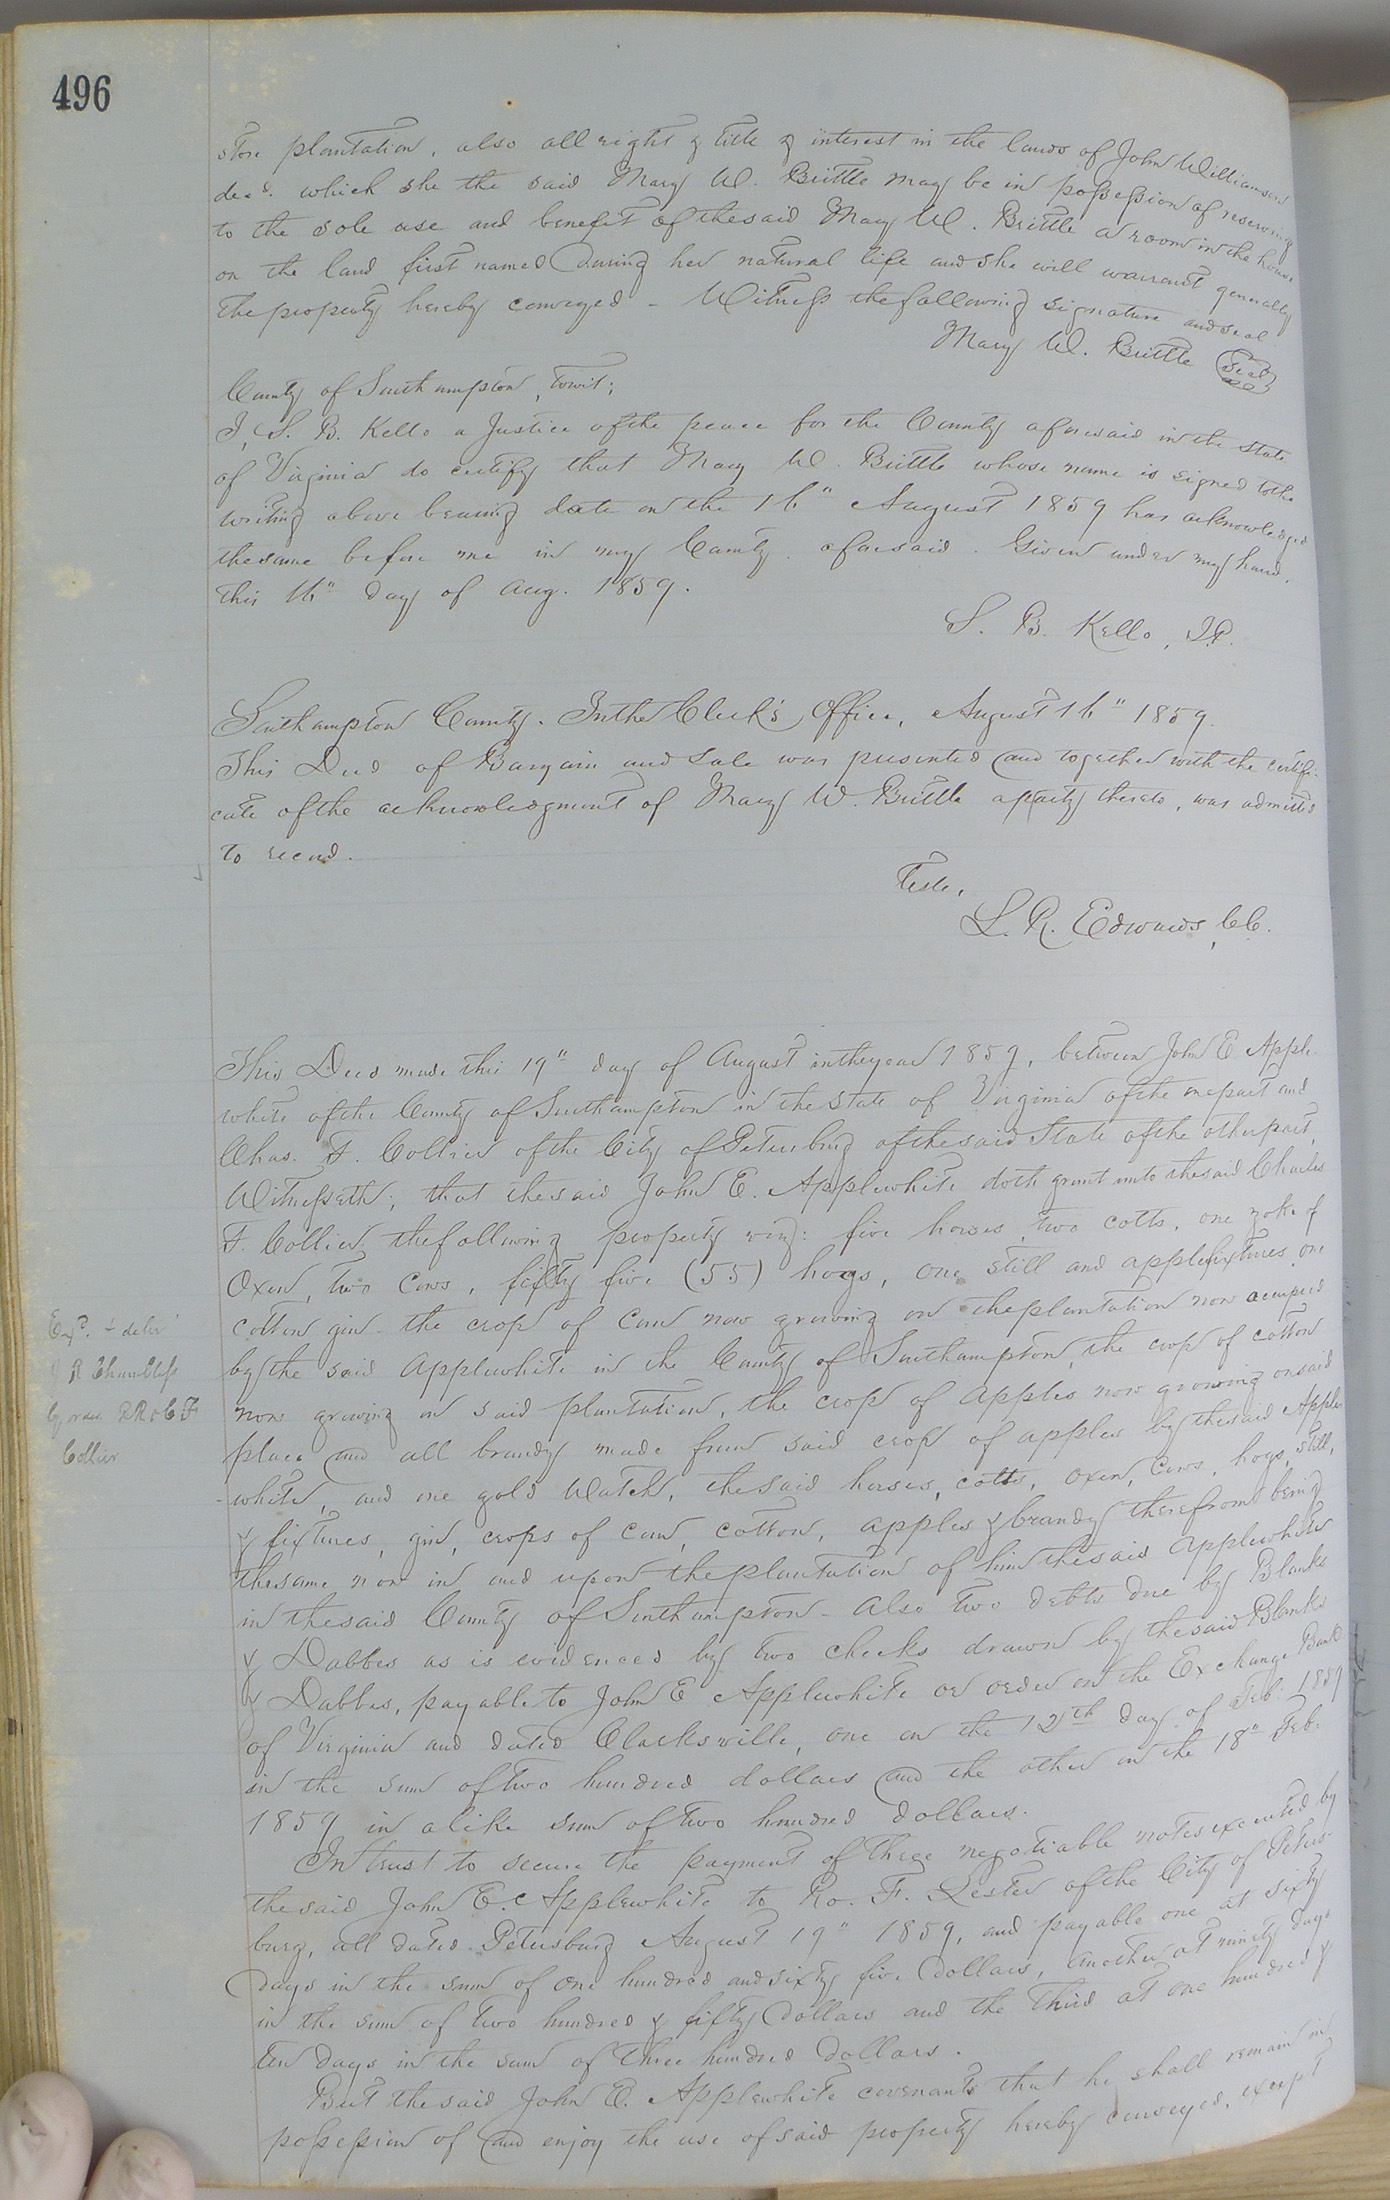 496
store plantation, also all right & title & interest in the lands of John Williamson
decd. which she the said Mary W. Brittle may be in possession of reserving
to the sole use and benefit of the said Mary W. Brittle a room in the house
on the land first named during her natural life and she will warrant generally
the property hereby conveyed - Witness the following signature and seal
Mary W. Brittle Seal
County of Southampton, towit;
I, S. B. Kello a Justice of the peace for the County aforesaid in the State
of Virginia do certify that Mary W. Brittle whose name is signed to the
writing above bearing date on the 16" August 1859 has acknowledged
the same before me in my County aforesaid. Given under my hand,
this 16" day of Aug. 1859.
S. B. Kello, J.P.
Southampton County. In the Clerk's Office, August 16" 1859.
This Deed of Bargain and Sale was presented and together with the certifi-
cate of the acknowledgment of Mary W. Brittle a party thereto, was admitted
to record.
Teste,
L. R. Edwards, C.C.
This Deed made this 19" day of August in the year 1859, between John E. Apple-
white of the County of Southampton in the State of Virginia of the one part and
Chas. F. Collier of the City of Petersburg of the said State of the other part,
Witnesseth; that the said John E. Applewhite doth grant unto the said Charles
F. Collier, the following property viz: five horses, two colts, one yoke of
Oxen, two cows, fifty five (55) hogs, one still and apple fixtures, one
cotton gin - the crop of corn now growing on the plantation now occupied
by the said Applewhite in the County of Southampton, the crop of cotton
now growing on said plantation, the crop of apples now growing on said
place and all brandy made from said crop of apples by the said Apple
-white, and one gold watch, the said horses, colts, oxen, cows, hogs, still,
& fixtures, gin, crops of corn, cotton, apples & brandy therefrom being
the same now in and upon the plantation of him the said Applewhite
in the said County of Southampton - Also two debts due by Blanks
& Dabbes as is evidenced by two checks drawn by the said Blanks
& Dabbes, payable to John E Applewhite or order on the Exchange Bank
of Virginia and dated Clarksville, one on the 12th day of Feb: 1859
in the sum of two hundred dollars and the other on the 18" Feb:
1859 in a like sum of two hundred dollars.
In trust to secure the payment of three negotiable notes executed by
the said John E. Applewhite to Ro. F. Lester of the City of Peters-
burg, all dated Petersburg August 19" 1859, and payable one at sixty
days in the sum of one hundred and sixty five dollars, another at ninety days
in the sum of two hundred & fifty dollars and the third at one hundred &
ten days in the sum of three hundred dollars.
But the said John E. Applewhite covenants that he shall remain in
possession of and enjoy the use of said property hereby conveyed, except
Exd. & delivd
J R Chambliss
by order
Collier